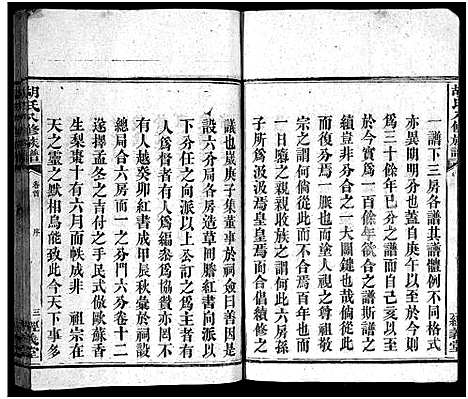 一譜下三房各譜其譜體例不同格式
亦異明明分也蓋自庚午以至于
己三十餘年已及三世矣亥以至
於今實爲一百餘年欲譜之斯譜
者分合之一大關鍵也哉倘從此
何倘從而分爲一脹而尊祖之視
何以體先靈而塗人視之尊祖敬
宗謂之親親收族之謂何此六房
子所爲汲汲焉皇皇焉而合倡續修
議也歲庚子集董事於祠僉曰善因是
設六分局各房造草冊謄紅書向派以
下分任之向派以上公訂之爲主者有
人爲督者有人爲編叅爲協贊亦罔不
有人越癸卯紅書成甲辰秋彙於祠設
總局合六房而一之分門六分卷十二
遂擇孟冬之吉付之手民式倣歐蘇香
生梨棗十有六月而帙成非　祖宗在
天之靈之默相烏能致此今天下事多
胡氏八修族譜
卷首
序
三
經義堂
胡氏八修族譜
經義堂